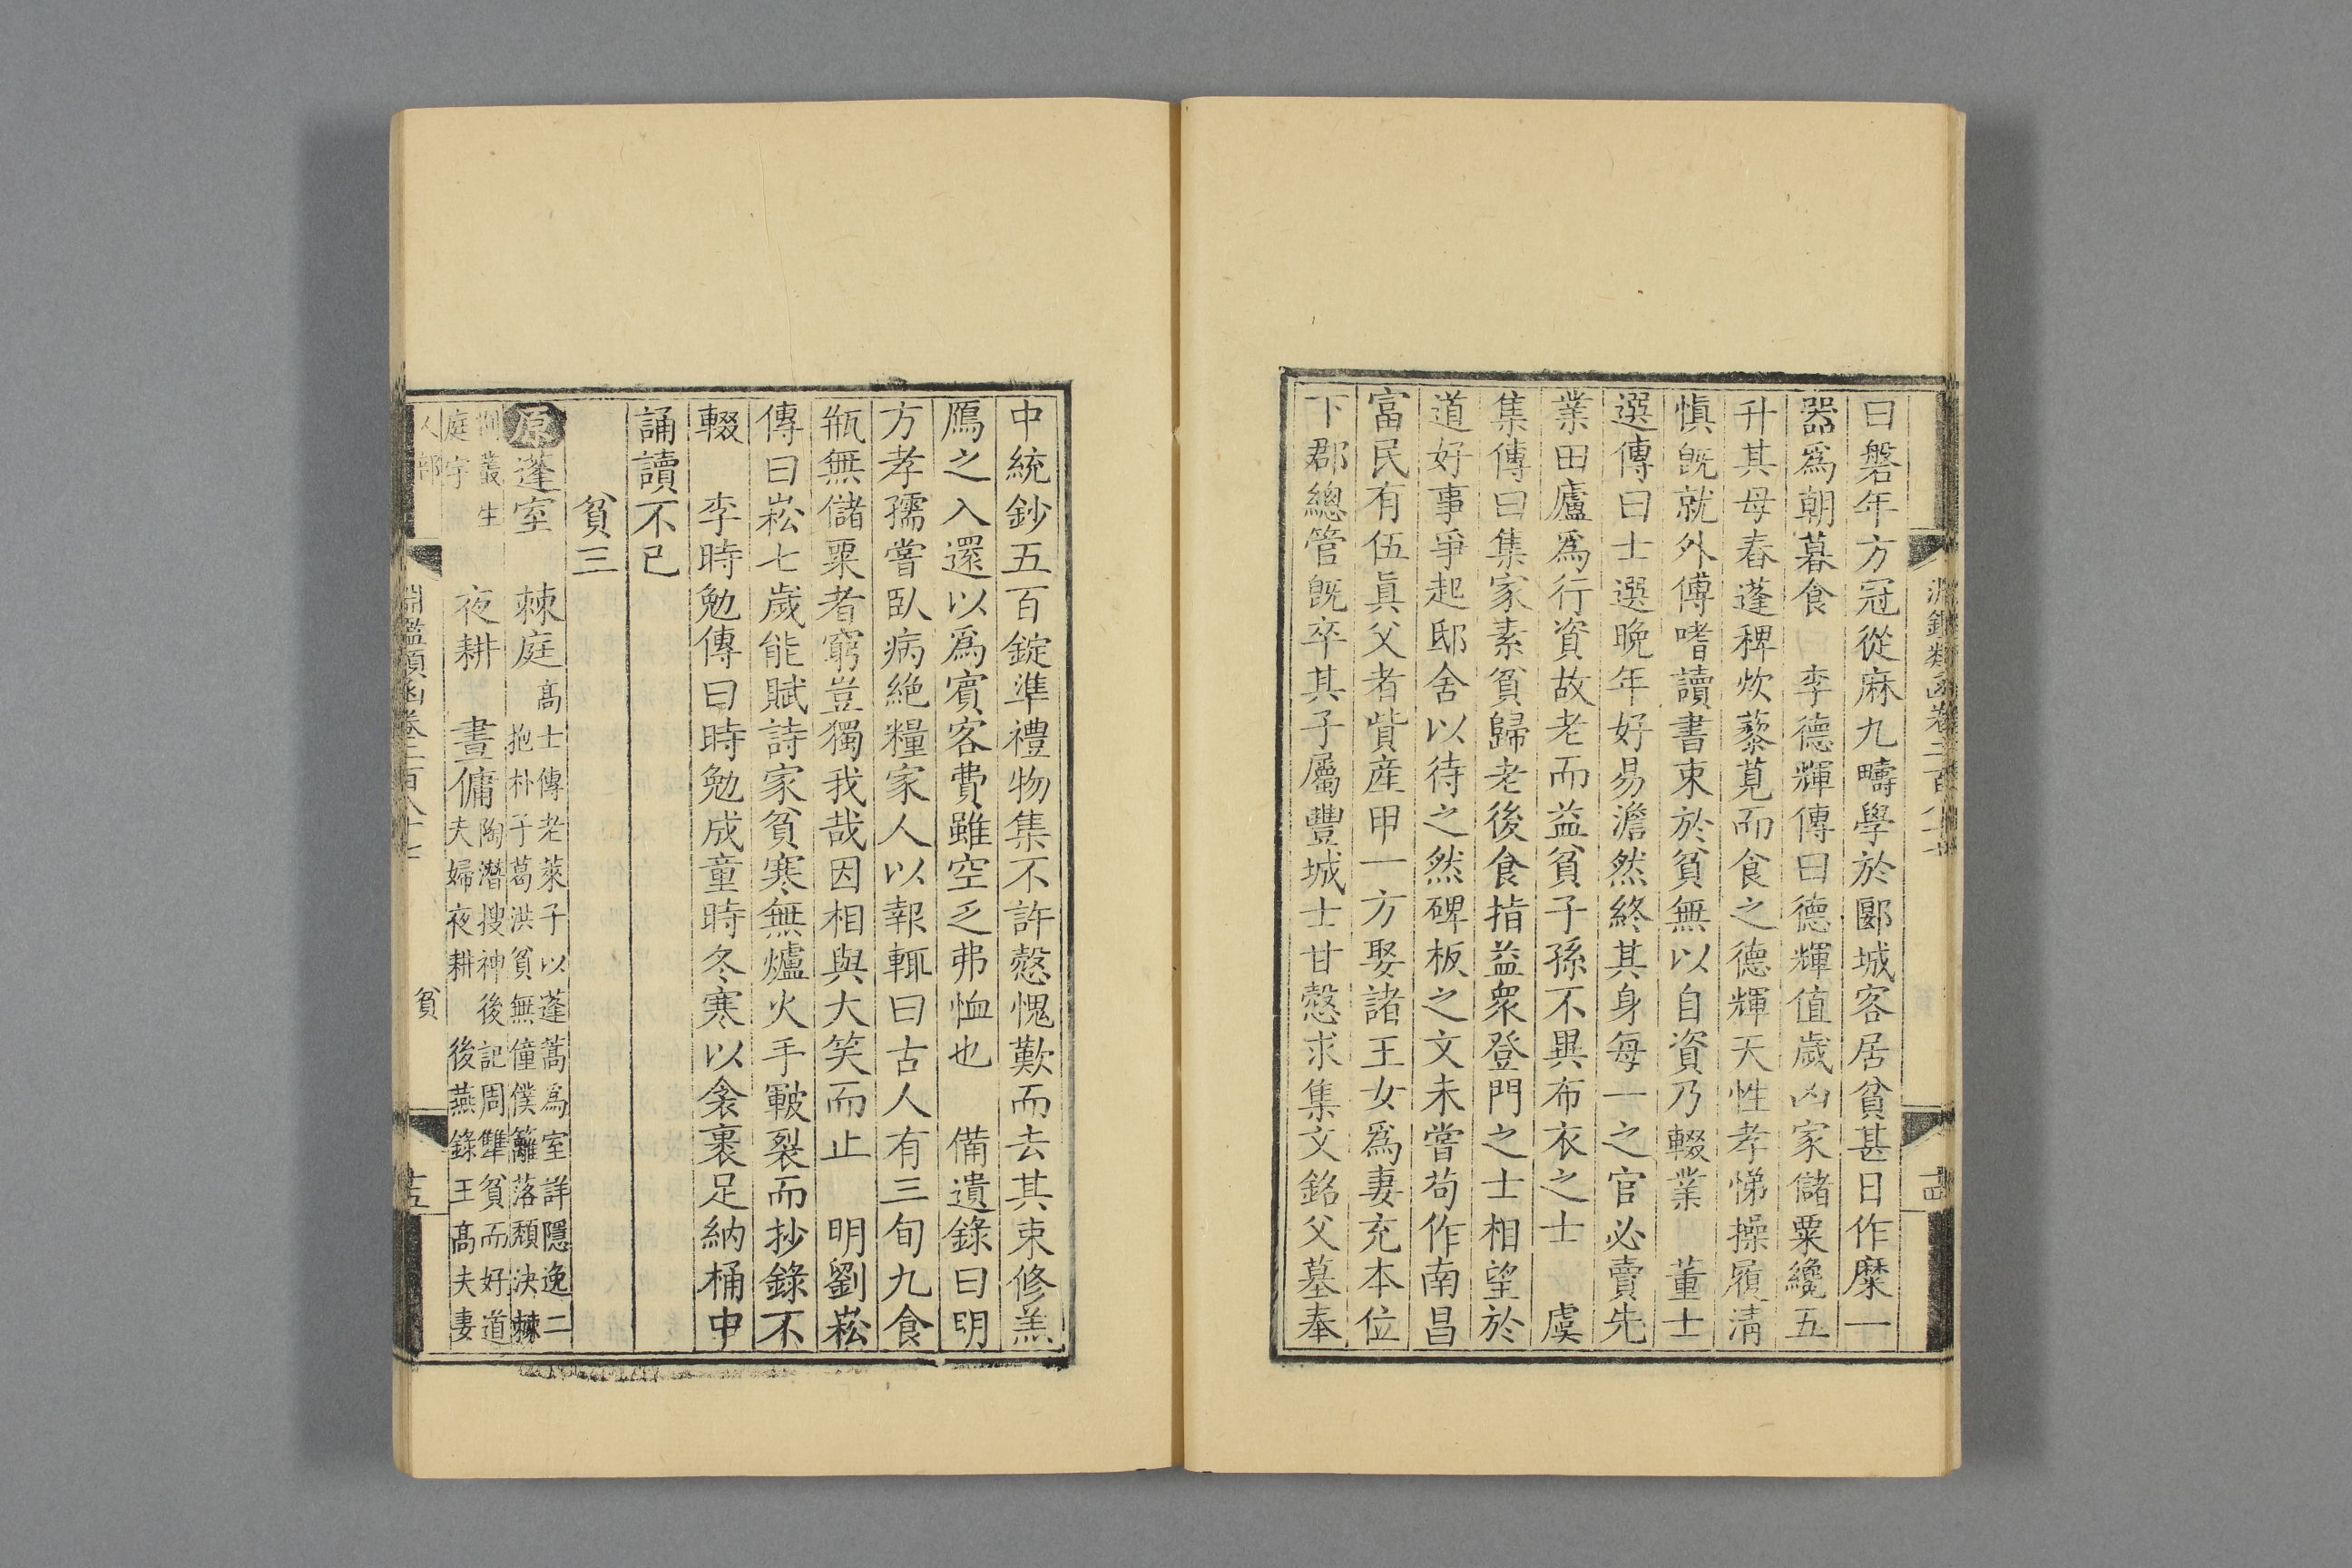 淵鑑類函卷二百八十七
曰磐年方冠從麻九疇學於郾城客居貧甚日作糜一
器爲朝暮食 李德輝傳曰德輝值歲凶家儲粟纔五
升其母舂蓬稗炊藜莧而食之德輝天性孝悌操履清
慎旣就外傅嗜讀書束於貧無以自資乃輟業 董士
選傳曰士選晚年好易澹然終其身每一之官必賣先
業田廬爲行資故老而益貧子孫不異布衣之士 虞
集傳曰集家素貧歸老後食指益衆登門之士相望於
道好事爭起邸舍以待之然碑板之文未嘗苟作南昌
富民有伍眞父者貲産甲一方娶諸王女爲妻充本位
下郡總管旣卒其子屬豐城士甘慤求集文銘父墓奉
中統鈔五百錠準禮物集不許慤愧歎而去其束修羔
鴈之入還以爲賓客費雖空乏弗恤也 備遺錄曰明
方孝孺嘗臥病絶糧家人以報輒曰古人有三旬九食
瓶無儲粟者窮豈獨我哉因相與大笑而止 明劉崧
傳曰崧七歲能賦詩家貧寒無爐火手皸裂而抄錄不
輟 李時勉傳曰時勉成童時冬寒以衾裹足納桶中
誦讀不已
貧三
原蓬室 棘庭高士傳老萊子以蓬蒿爲室詳隱逸二 抱朴子葛洪貧無僮僕籬落頹決棘
荆叢生庭宇 夜耕 晝傭陶潛搜神後記周犨貧而好道夫婦夜耕 後燕錄王高夫妻
人部 淵鑑類函卷二百八十七 貧 十五